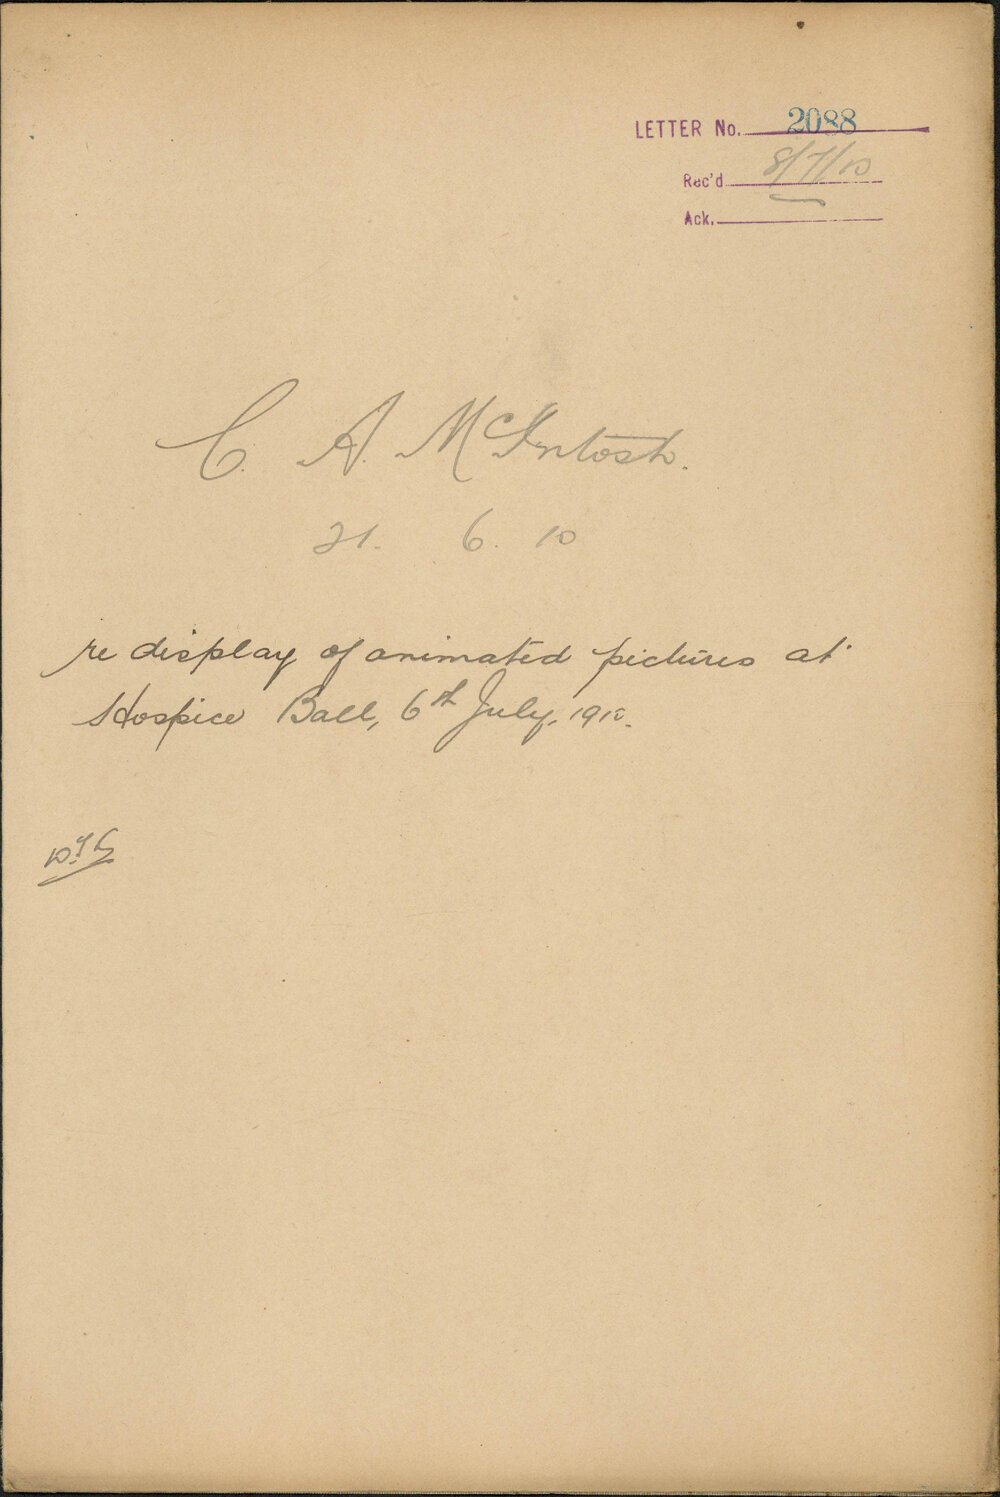 LETTER No. 2088
Rec'd 8/7/10
Ack.
C. A. McIntosh.
21. 6. 10
re display of animated pictures at
Hospice Ball, 6th July, 1910.